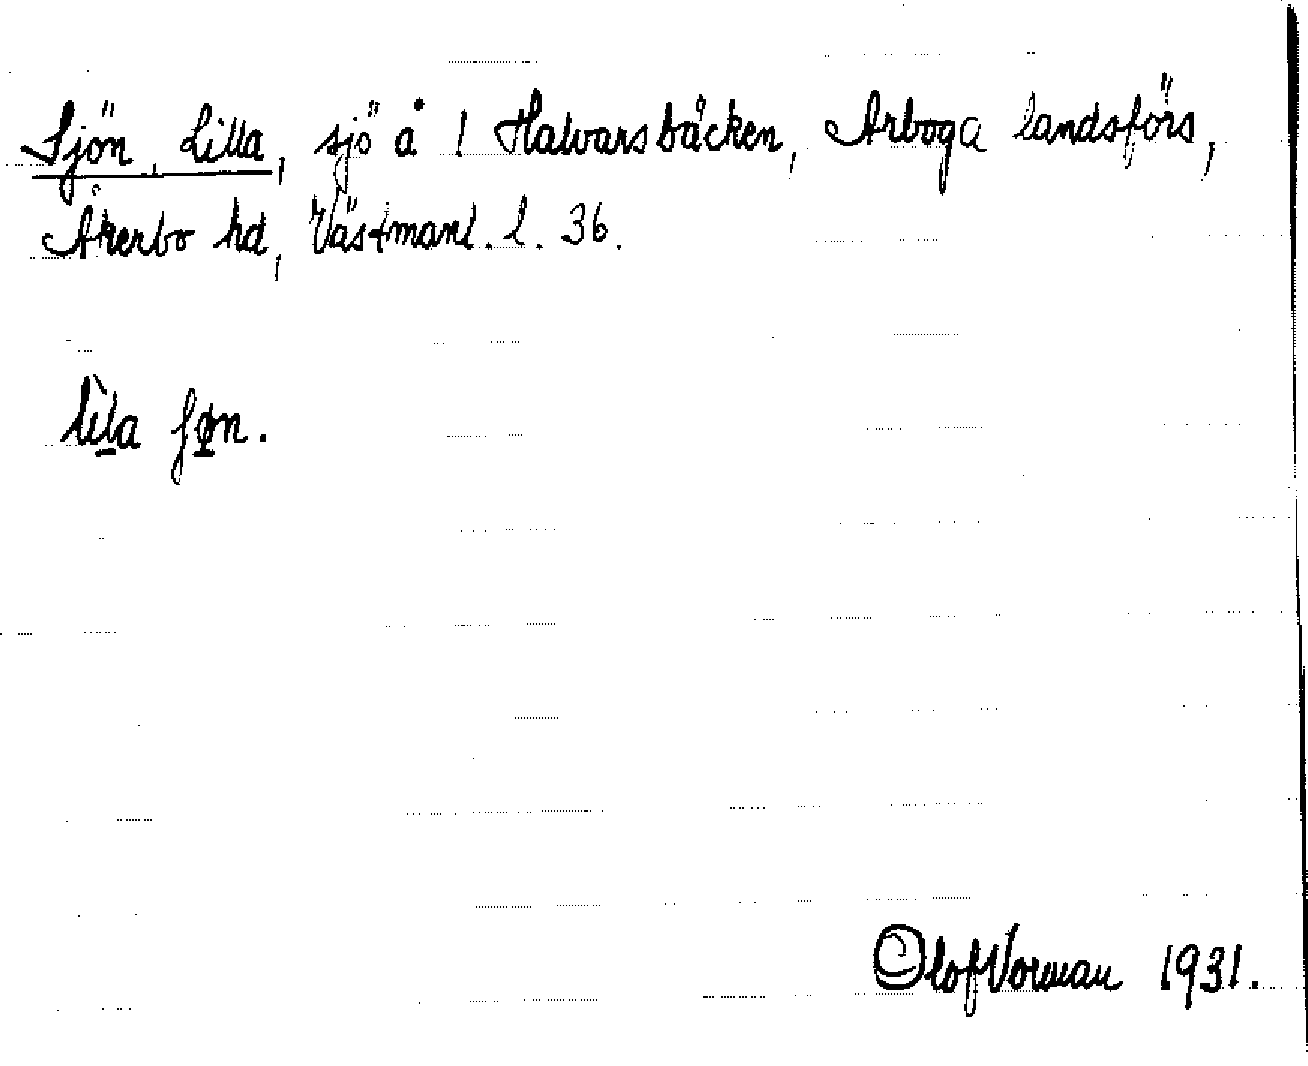 Sjön, Lilla, sjö å ! Halvarsbäcken, Arboga landsförs,
Åkerbo hd, Västmanl. l. 36.
lìla ʃøn.
Olof Vorman 1931.